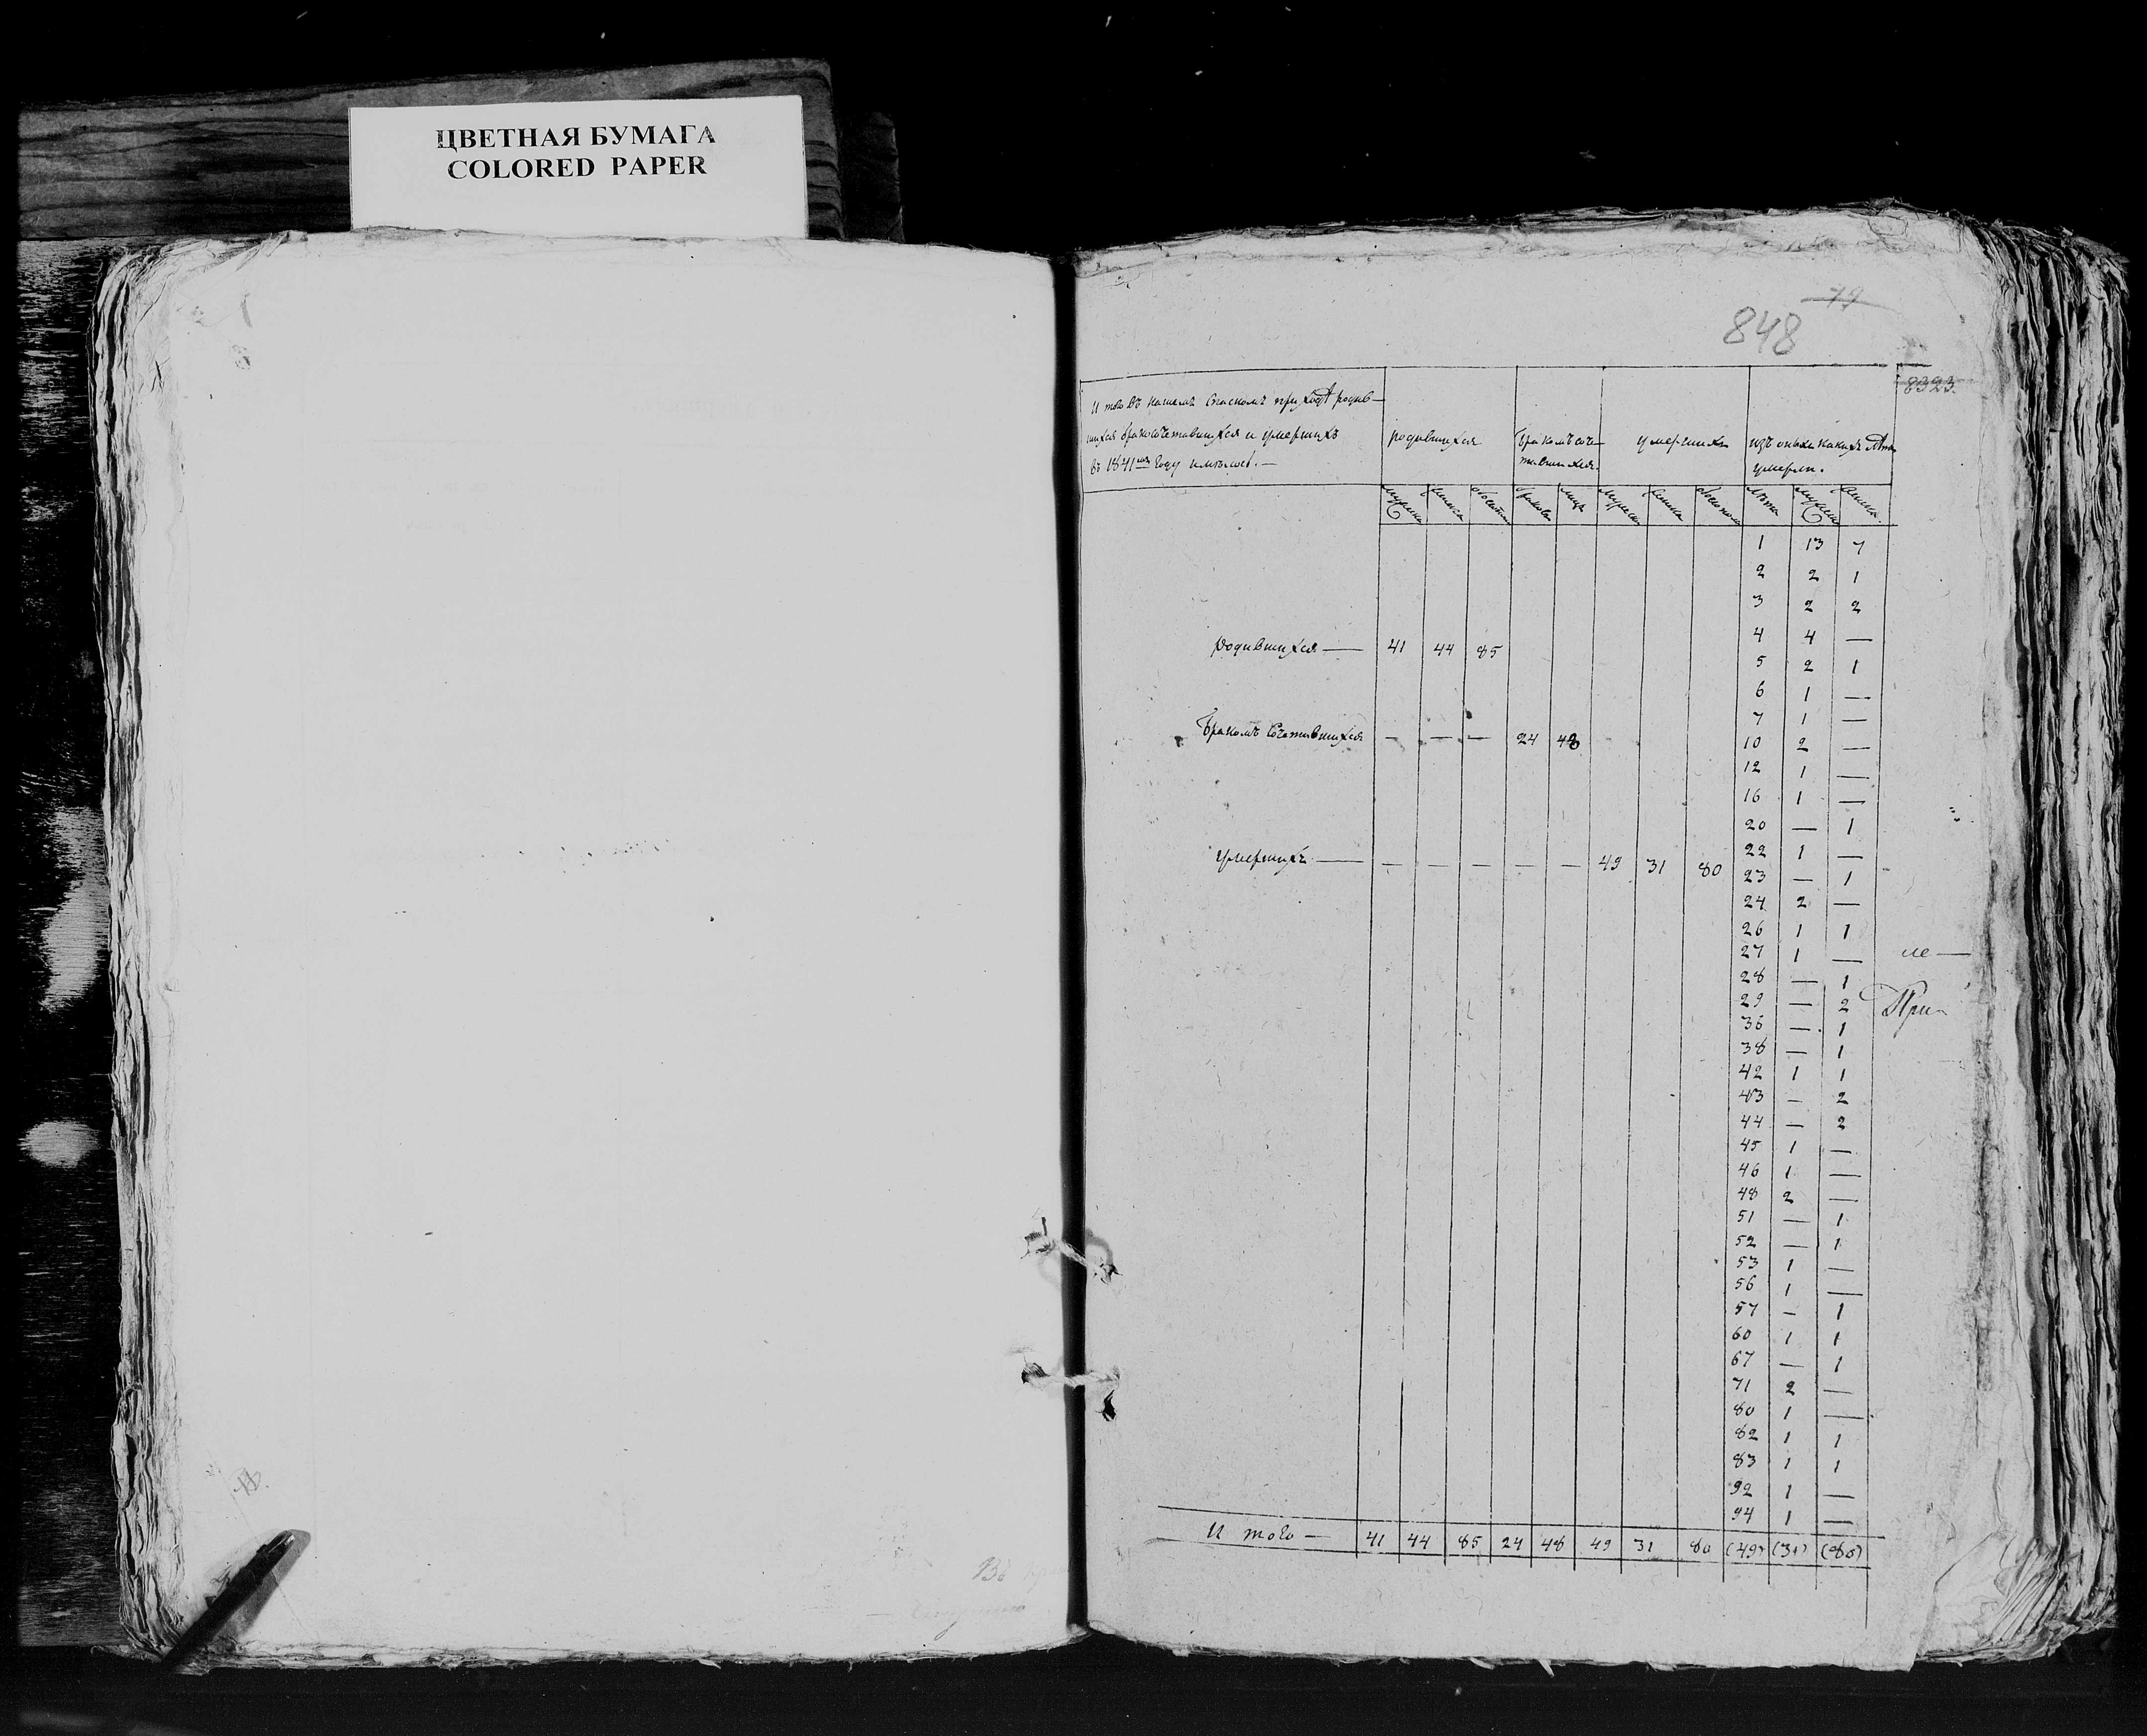 ЦВЕТНАЯ БУМАГА
COLORED PAPER
79
848
8323.
И того въ нашемъ Спаскомъ приходѣ родив-
шихся бракосочетавшихся и умершихъ
въ 1841мъ году имѣлось. —
родившихся
бракомъ соче-
тавшихся.
умершихъ
изъ оныхъ какихъ лѣтъ
умерли.
мужеска женска обоего браковъ лицъ мужеска женска обоего пола лѣта мужеска женска
1 13 7
2 2 1
3 2 2
4 4 —
Родившихся — 41 44 85
5 2 1
6 1 —
7 1 —
Бракомъ сочетавшихся — — — 24 48
10 2 —
12 1 —
16 1 —
20 — 1
22 1 —
умершихъ — — — — — — 49 31 80
23 — 1
24 2 —
26 1 1
27 1 —
28 — 1
29 — 2
При
36 — 1
38 — 1
42 1 1
43 — 2
44 — 2
45 1 —
46 1 —
48 2 —
51 — 1
52 — 1
53 1 —
56 1 —
57 — 1
60 1 1
67 — 1
71 2 —
80 1 —
82 1 1
83 1 1
92 1 —
94 1 —
И того — 41 44 85 24 48 49 31 80 (49) (31) (80)